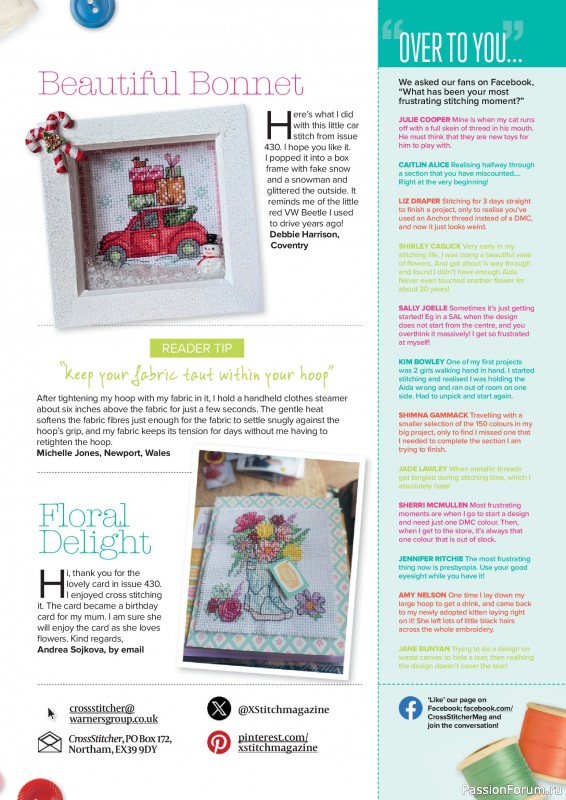 Beautiful Bonnet
Here's what I did
with this little car
stitch from issue
430. I hope you like it.
I popped it into a box
frame with fake snow
and a snowman and
glittered the outside. It
reminds me of the little
red VW Beetle I used
to drive years ago!
Debbie Harrison,
Coventry
READER TIP
"Keep your fabric taut within your hoop"
After tightening my hoop with my fabric in it, I hold a handheld clothes steamer
about six inches above the fabric for just a few seconds. The gentle heat
softens the fabric fibres just enough for the fabric to settle snugly against the
hoop's grip, and my fabric keeps its tension for days without me having to
retighten the hoop.
Michelle Jones, Newport, Wales
Floral
Delight
Hi, thank you for the
lovely card in issue 430.
I enjoyed cross stitching
it. The card became a birthday
card for my mum. I am sure she
will enjoy the card as she loves
flowers. Kind regards,
Andrea Sojkova, by email
crossstitcher@
warnersgroup.co.uk
CrossStitcher, PO Box 172,
Northam, EX39 9DY
@XStitchmagazine
pinterest.com/
xstitchmagazine
"OVER TO YOU..."
We asked our fans on Facebook,
"What has been your most
frustrating stitching moment?"
JULIE COOPER Mine is when my cat runs
off with a full skein of thread in his mouth.
He must think that they are new toys for
him to play with.
CAITLIN ALICE Realising halfway through
a section that you have miscounted....
Right at the very beginning!
LIZ DRAPER Stitching for 3 days straight
to finish a project, only to realise you've
used an Anchor thread instead of a DMC,
and now it just looks weird.
SHIRLEY CASLICK Very early in my
stitching life, I was doing a beautiful vase
of flowers. And got about ¾ way through
and found I didn't have enough Aida.
Never even touched another flower for
about 20 years!
SALLY JOELLE Sometimes it's just getting
started! Eg in a SAL when the design
does not start from the centre, and you
overthink it massively! I get so frustrated
at myself!
KIM BOWLEY One of my first projects
was 2 girls walking hand in hand. I started
stitching and realised I was holding the
Aida wrong and ran out of room on one
side. Had to unpick and start again.
SHIMNA GAMMACK Travelling with a
smaller selection of the 150 colours in my
big project, only to find I missed one that
I needed to complete the section I am
trying to finish.
JADE LAWLEY When metallic threads
get tangled during stitching time, which I
absolutely hate!
SHERRI MCMULLEN Most frustrating
moments are when I go to start a design
and need just one DMC colour. Then,
when I get to the store, it's always that
one colour that is out of stock.
JENNIFER RITCHIE The most frustrating
thing now is presbyopia. Use your good
eyesight while you have it!
AMY NELSON One time I lay down my
large hoop to get a drink, and came back
to my newly adopted kitten laying right
on it! She left lots of little black hairs
across the whole embroidery.
JANE BUNYAN Trying to do a design on
waste canvas to hide a tear, then realising
the design doesn't cover the tear!
'Like' our page on
Facebook; facebook.com/
CrossStitcherMag and
join the conversation!
PassionForum.ru